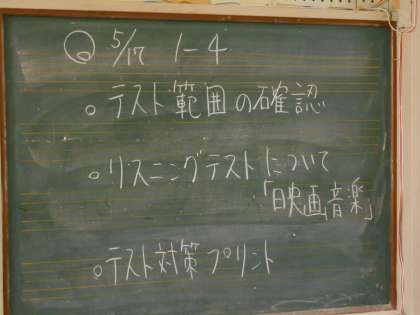 5/17 1-4
○ テスト範囲の確認
○ リスニングテストについて
「映画音楽」
○ テスト対策プリント